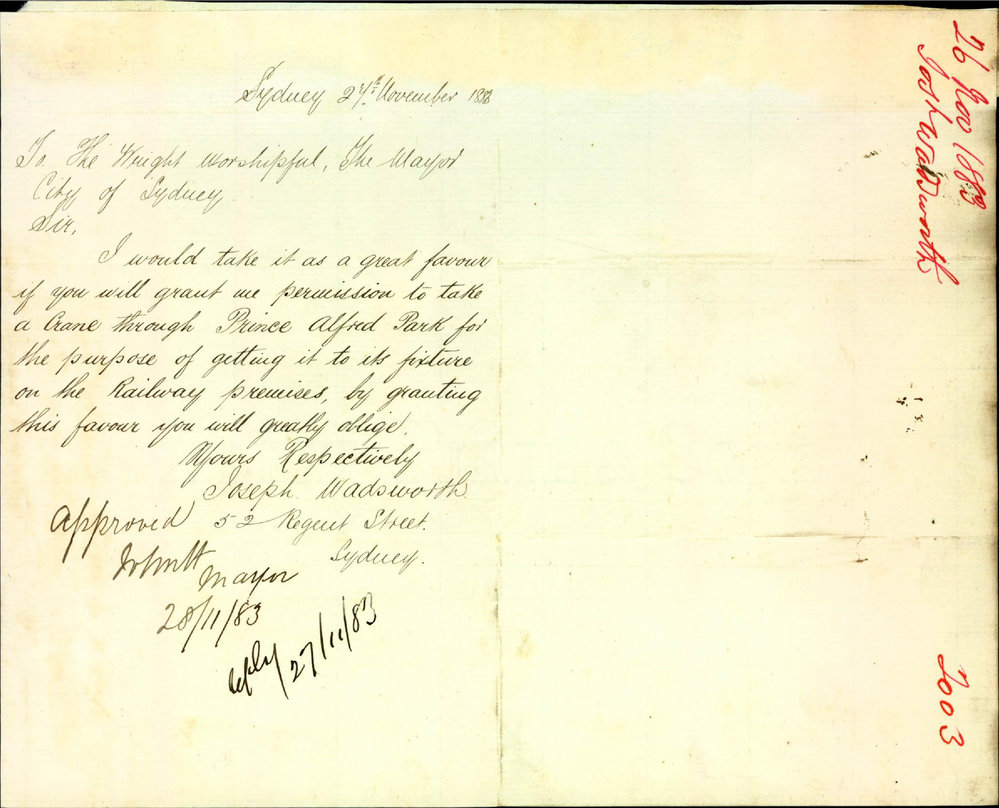 Sydney 27th November 1883
To The Wright Worshipful, The Mayor
City of Sydney.
Sir,
I would take it as a great favour
if you will grant me permission to take
a Crane through Prince Alfred Park for
the purpose of getting it to its fixture
on the Railway premises, by granting
this favour you will greatly oblige.
Yours Respectively
Joseph Wadsworth
52 Regent Street.
Sydney.
Approved
Mayor
28/11/83
27/11/83
26 Nov 1883
Josh Wadsworth
2003